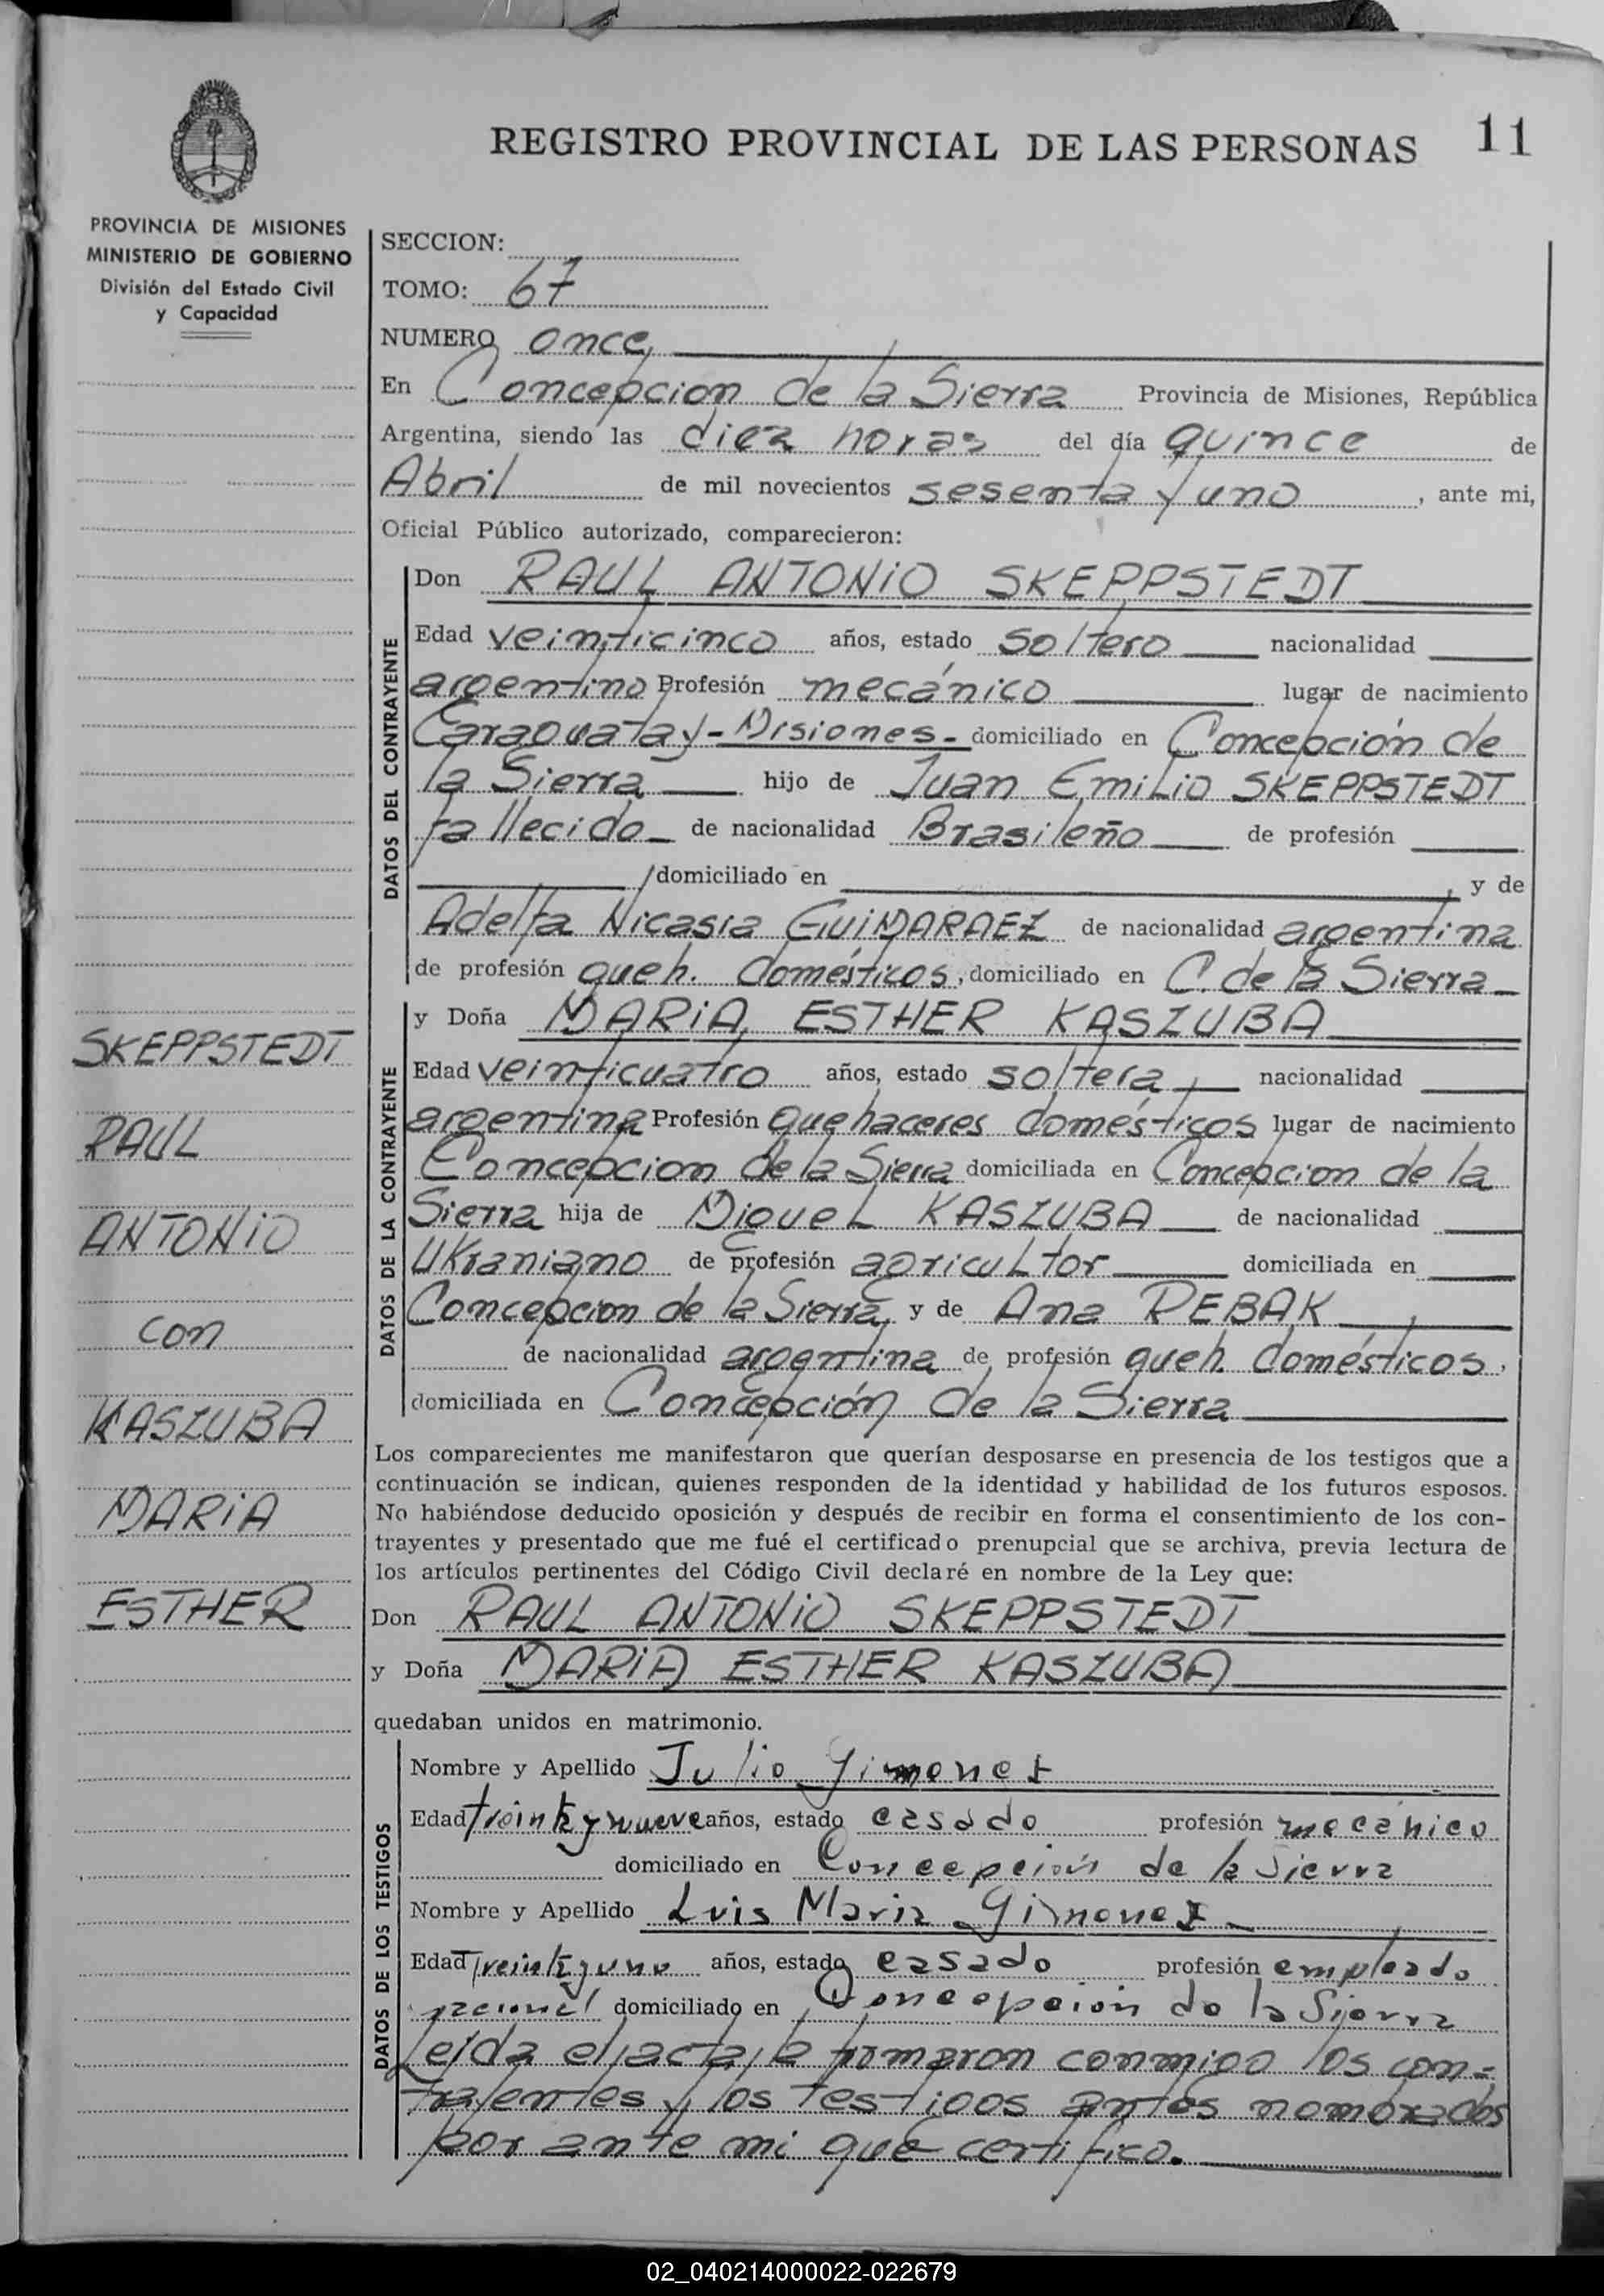 REGISTRO PROVINCIAL DE LAS PERSONAS 11
PROVINCIA DE MISIONES
MINISTERIO DE GOBIERNO
División del Estado Civil
y Capacidad
SKEPPSTEDT
RAUL
ANTONIO
con
KASZUBA
MARIA
ESTHER
SECCION:
TOMO: 67
NUMERO once,
En Concepcion de la Sierra Provincia de Misiones, República
Argentina, siendo las diez horas del día quince de
Abril de mil novecientos sesenta y uno, ante mi,
Oficial Público autorizado, comparecieron:
DATOS DEL CONTRAYENTE
Don RAUL ANTONIO SKEPPSTEDT
Edad veinticinco años, estado soltero nacionalidad
argentino Profesión mecánico lugar de nacimiento
Caraguatay - Misiones - domiciliado en Concepción de
la Sierra hijo de Juan Emilio SKEPPSTEDT
fallecido de nacionalidad Brasileño de profesión
domiciliado en , y de
Adelfa Nicasia GUIMARAEZ de nacionalidad argentina
de profesión queh. domésticos, domiciliado en C. de la Sierra
DATOS DE LA CONTRAYENTE
y Doña MARIA ESTHER KASZUBA
Edad veinticuatro años, estado soltera, nacionalidad
argentina Profesión quehaceres domésticos lugar de nacimiento
Concepcion de la Sierra domiciliada en Concepcion de la
Sierra hija de Miguel KASZUBA de nacionalidad
Ukraniano de profesión agricultor domiciliada en
Concepcion de la Sierra, y de Ana REBAK
de nacionalidad argentina de profesión queh. domésticos,
domiciliada en Concepción de la Sierra
Los comparecientes me manifestaron que querían desposarse en presencia de los testigos que a
continuación se indican, quienes responden de la identidad y habilidad de los futuros esposos.
No habiéndose deducido oposición y después de recibir en forma el consentimiento de los con-
trayentes y presentado que me fué el certificado prenupcial que se archiva, previa lectura de
los artículos pertinentes del Código Civil declaré en nombre de la Ley que:
Don RAUL ANTONIO SKEPPSTEDT
y Doña MARIA ESTHER KASZUBA
quedaban unidos en matrimonio.
DATOS DE LOS TESTIGOS
Nombre y Apellido Julio Gimenez
Edad treinta y nueve años, estado casado profesión mecánico
domiciliado en Concepción de la Sierra
Nombre y Apellido Luis Maria Gimenez
Edad treinta y uno años, estado casado profesión empleado
nacional domiciliado en Concepcion de la Sierra
Leida el acta, la firmaron conmigo los con=
trayentes y los testigos antes nombrados
por ante mi que certifico.
02_040214000022-022679